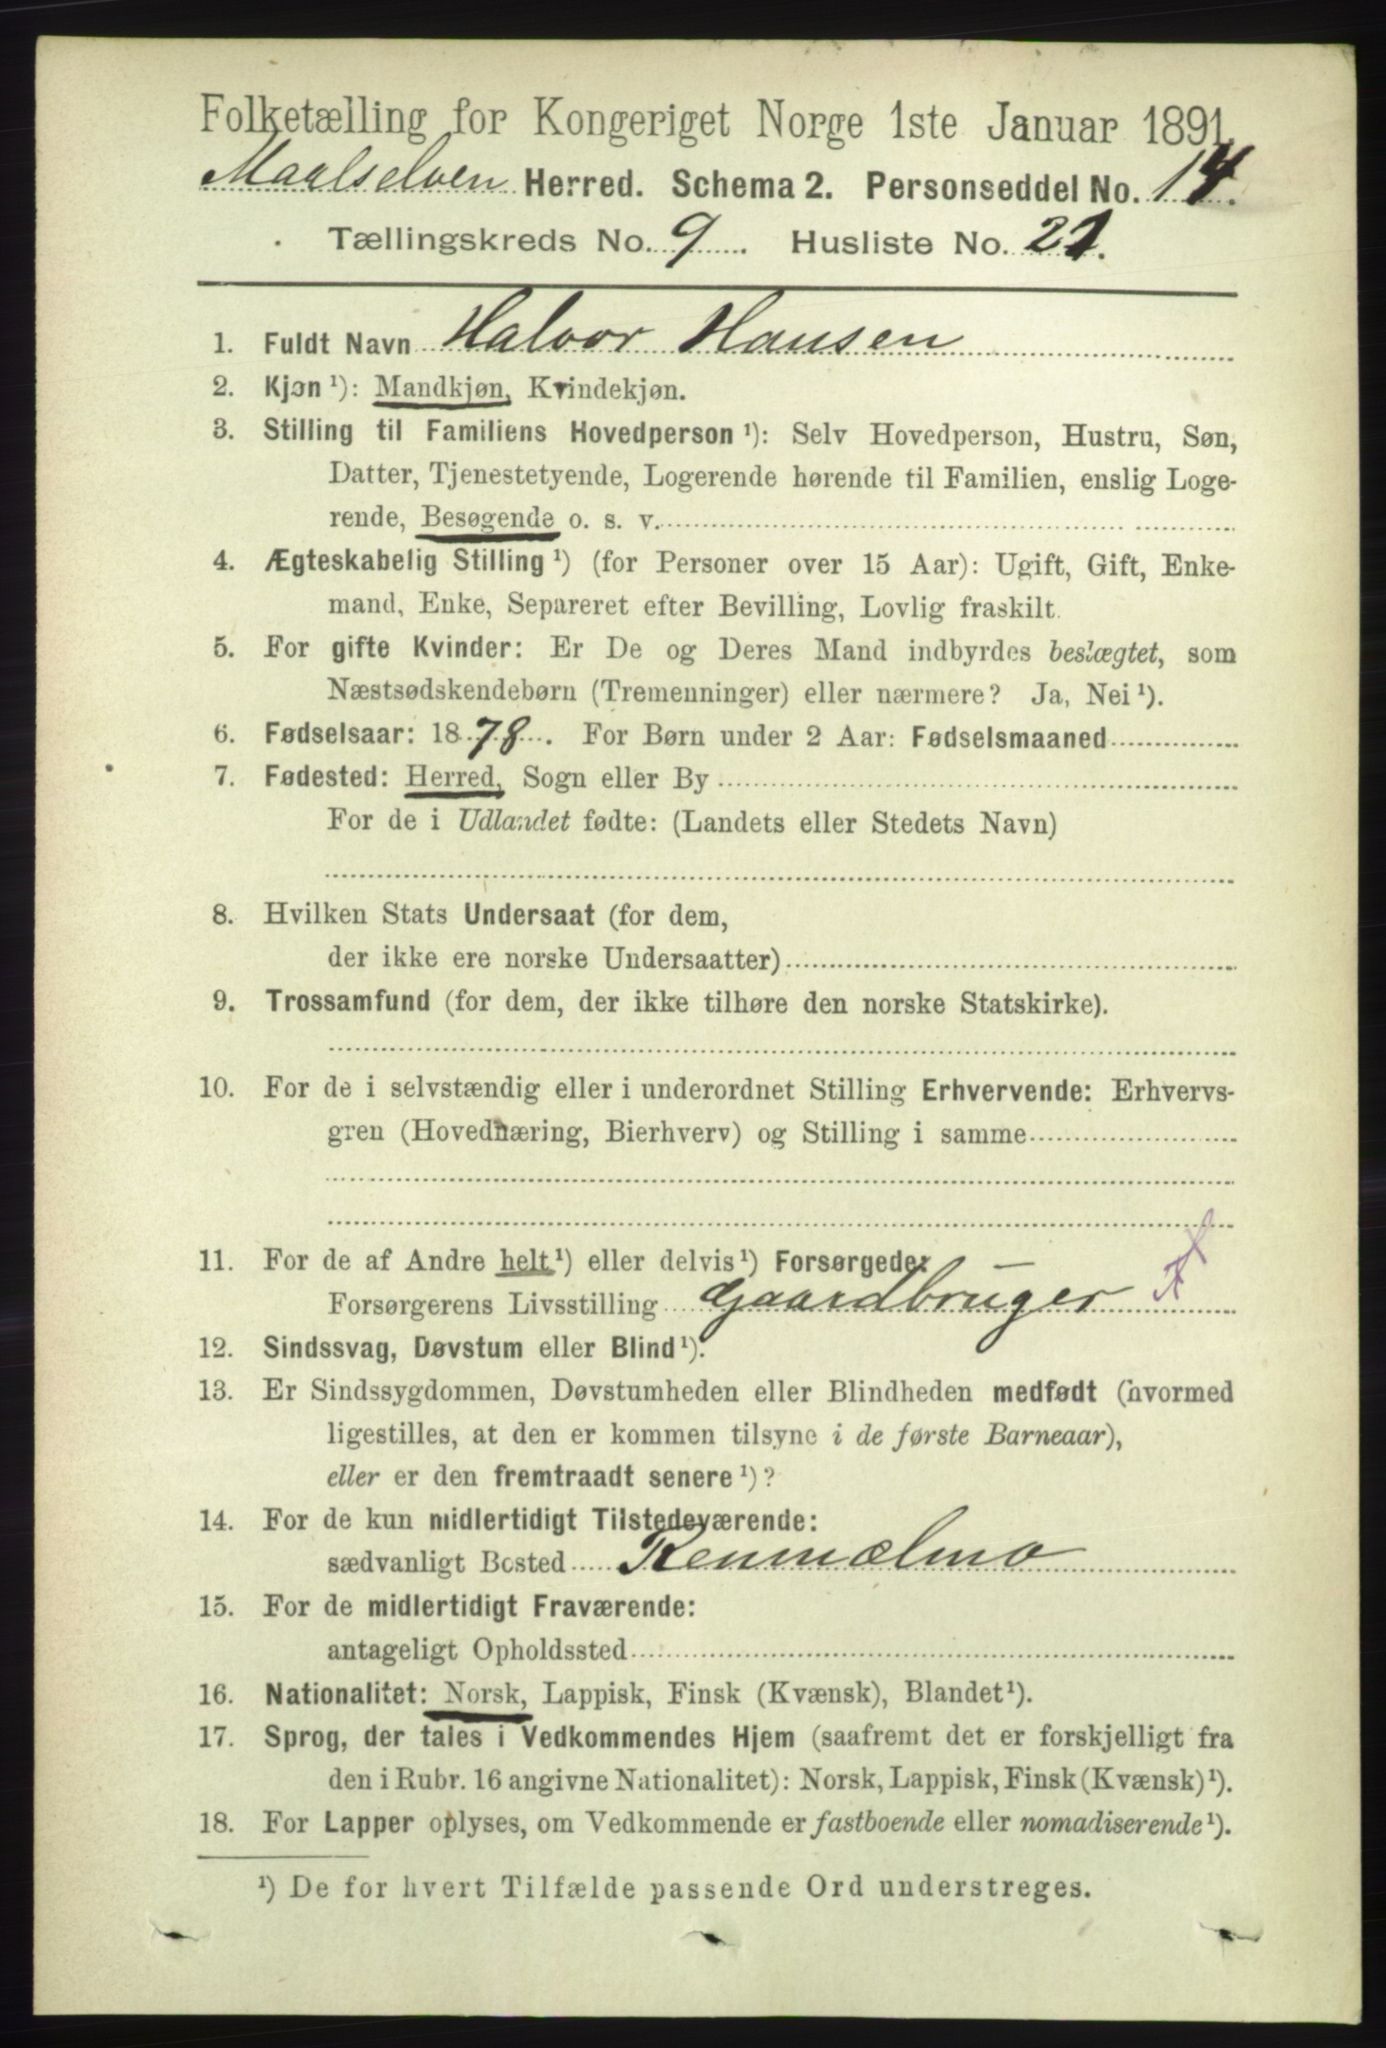 Folketælling for Kongeriget Norge 1ste Januar 1891.
Maalselven Herred. Schema 2. Personseddel No. 14.
Tællingskreds No. 9. Husliste No. 21.
1. Fuldt Navn Halvor Hansen
2. Kjøn ¹): Mandkjøn, Kvindekjøn.
3. Stilling til Familiens Hovedperson ¹): Selv Hovedperson, Hustru, Søn,
Datter, Tjenestetyende, Logerende hørende til Familien, enslig Loge-
rende, Besøgende o. s. v.
4. Ægteskabelig Stilling ¹) (for Personer over 15 Aar): Ugift, Gift, Enke-
mand, Enke, Separeret efter Bevilling, Lovlig fraskilt.
5. For gifte Kvinder: Er De og Deres Mand indbyrdes beslægtet, som
Næstsødskendebørn (Tremenninger) eller nærmere? Ja, Nei ¹).
6. Fødselsaar: 1878. For Børn under 2 Aar: Fødselsmaaned
7. Fødested: Herred, Sogn eller By
For de i Udlandet fødte: (Landets eller Stedets Navn)
8. Hvilken Stats Undersaat (for dem,
der ikke ere norske Undersaatter)
9. Trossamfund (for dem, der ikke tilhøre den norske Statskirke).
10. For de i selvstændig eller i underordnet Stilling Erhvervende: Erhvervs-
gren (Hovednæring, Bierhverv) og Stilling i samme
11. For de af Andre helt ¹) eller delvis ¹) Forsørgede:
Forsørgerens Livsstilling Gaardbruger
12. Sindssvag, Døvstum eller Blind ¹).
13. Er Sindssygdommen, Døvstumheden eller Blindheden medfødt (hvormed
ligestilles, at den er kommen tilsyne i de første Barneaar),
eller er den fremtraadt senere ¹)?
14. For de kun midlertidigt Tilstedeværende:
sædvanligt Bosted Renmælmo
15. For de midlertidigt Fraværende:
antageligt Opholdssted
16. Nationalitet: Norsk, Lappisk, Finsk (Kvænsk), Blandet ¹).
17. Sprog, der tales i Vedkommendes Hjem (saafremt det er forskjelligt fra
den i Rubr. 16 angivne Nationalitet): Norsk, Lappisk, Finsk (Kvænsk) ¹).
18. For Lapper oplyses, om Vedkommende er fastboende eller nomadiserende ¹).
¹) De for hvert Tilfælde passende Ord understreges.